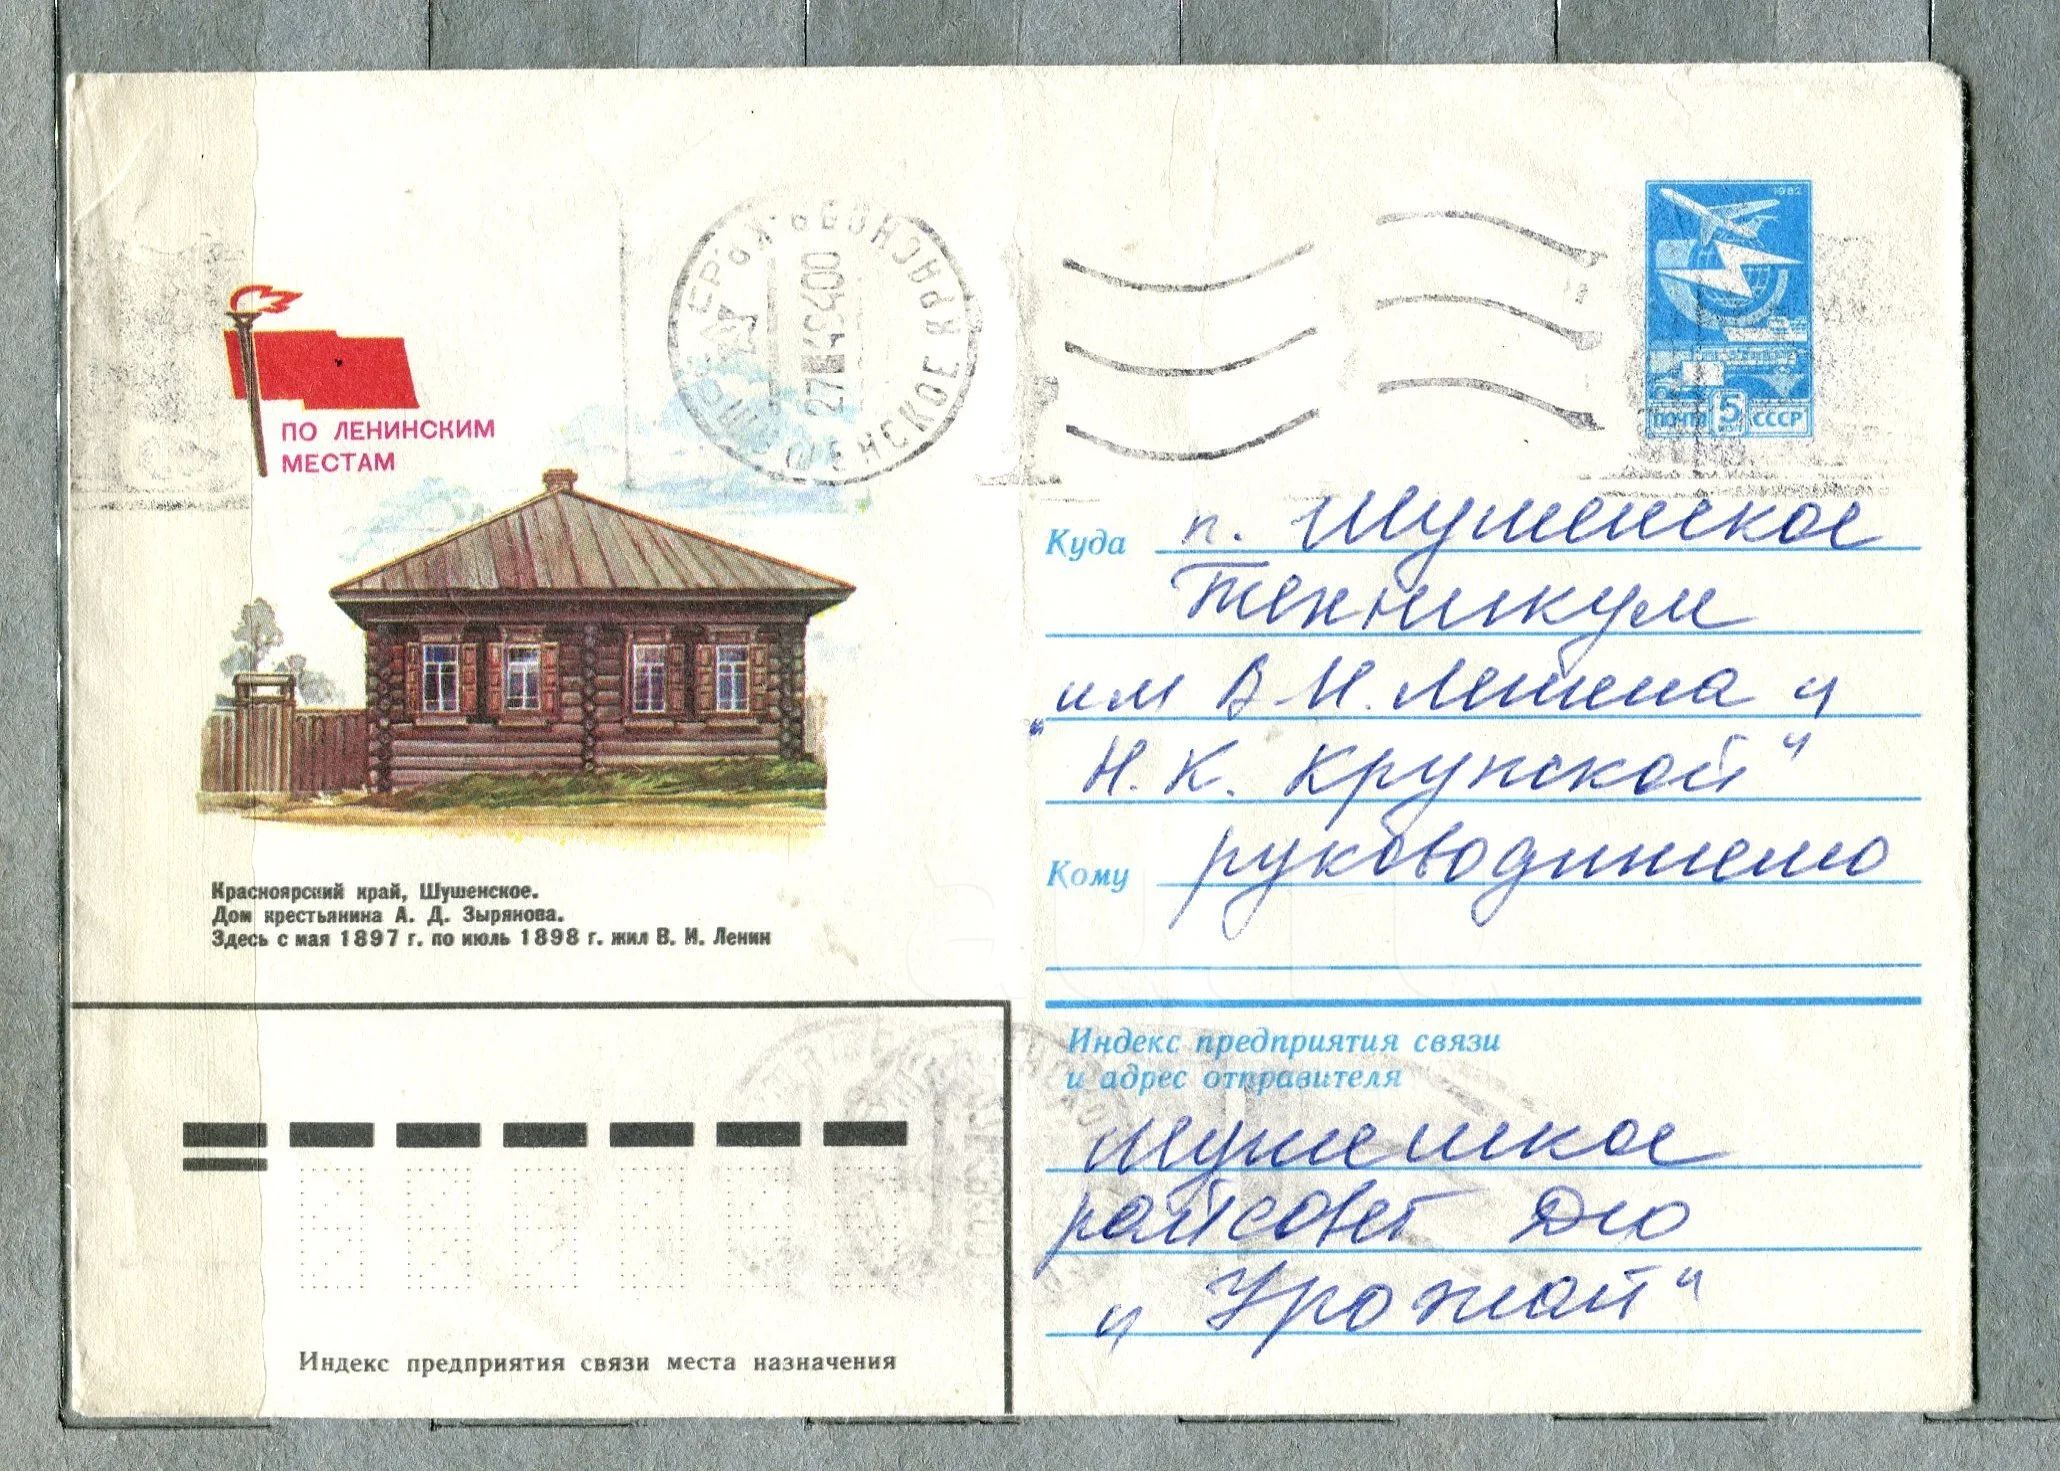 ПО ЛЕНИНСКИМ
МЕСТАМ
Красноярский край, Шушенское.
Дом крестьянина А. Д. Зырянова.
Здесь с мая 1897 г. по июль 1898 г. жил В. И. Ленин
1982
ПОЧТА 5 СССР
Куда п. Шушенское
Техникум
"им В И. Ленина и
Н. К. Крупской"
Кому руководителю
Индекс предприятия связи
и адрес отправителя
Шушенское
райсовет ДСО
"Урожай"
Индекс предприятия связи места назначения